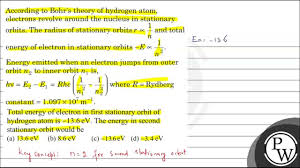 According to Bohr's theory of hydrogen atom,
electrons revolve around the nucleus in stationary
orbits. The radius of stationary orbits r ∝ 1/n and total
energy of electron in stationary orbits -E ∝ 1/n².
Energy emitted when an electron jumps from outer
orbit n₂ to inner orbit n₁ is,
hν = E₂ - E₁ = Rhc (1/n₁² - 1/n₂²) where R = Rydberg
constant = 1.097×10⁷ m⁻¹.
Total energy of electron in first stationary orbit of
hydrogen atom is -13.6 eV. The energy in second
stationary orbit would be
(a) 13.6 eV (b) 8.6 eV (c) -13.6 eV (d) -3.4 eV
Key concept: n=2 for second stationary orbit
-13.6
P
Pearl